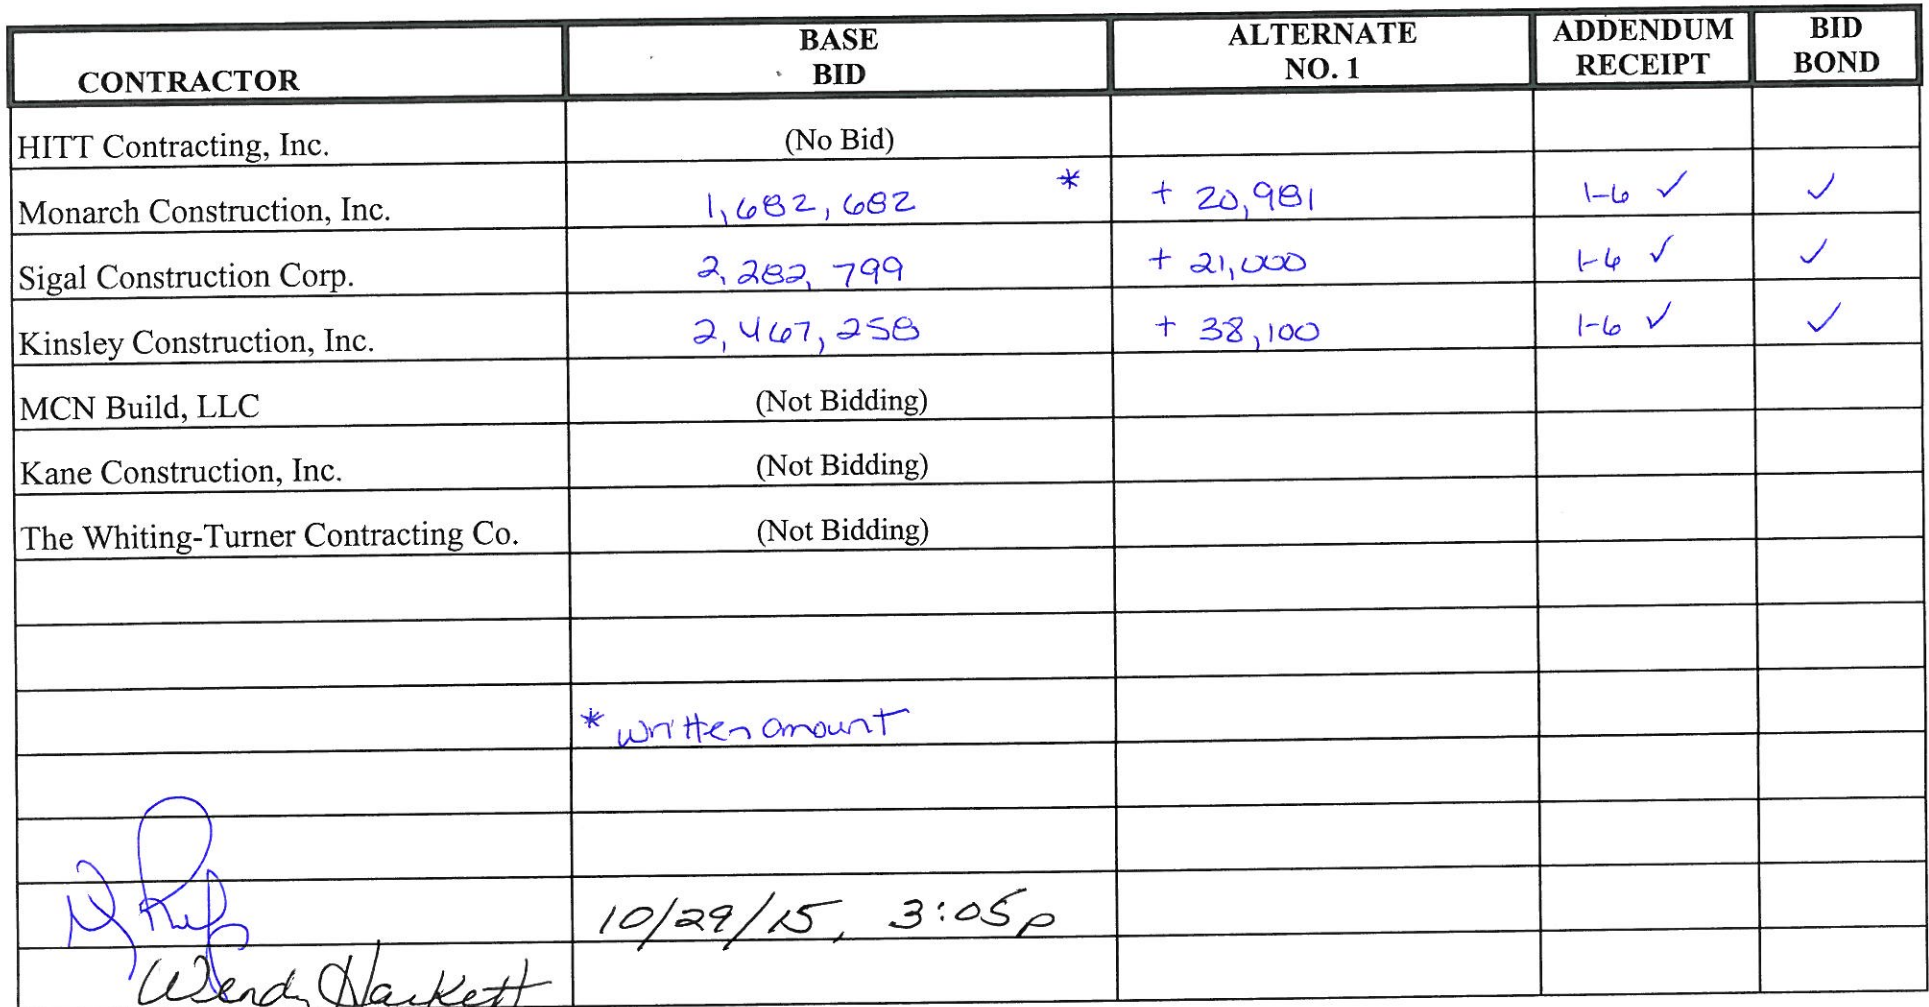 CONTRACTOR BASE BID ALTERNATE NO. 1 ADDENDUM RECEIPT BID BOND
HITT Contracting, Inc. (No Bid)
Monarch Construction, Inc. 1,682,682 * + 20,981 1-6 ✓ ✓
Sigal Construction Corp. 2,282,799 + 21,000 1-6 ✓ ✓
Kinsley Construction, Inc. 2,467,258 + 38,100 1-6 ✓ ✓
MCN Build, LLC (Not Bidding)
Kane Construction, Inc. (Not Bidding)
The Whiting-Turner Contracting Co. (Not Bidding)
* written amount
10/29/15, 3:05p
Wendy Hackett